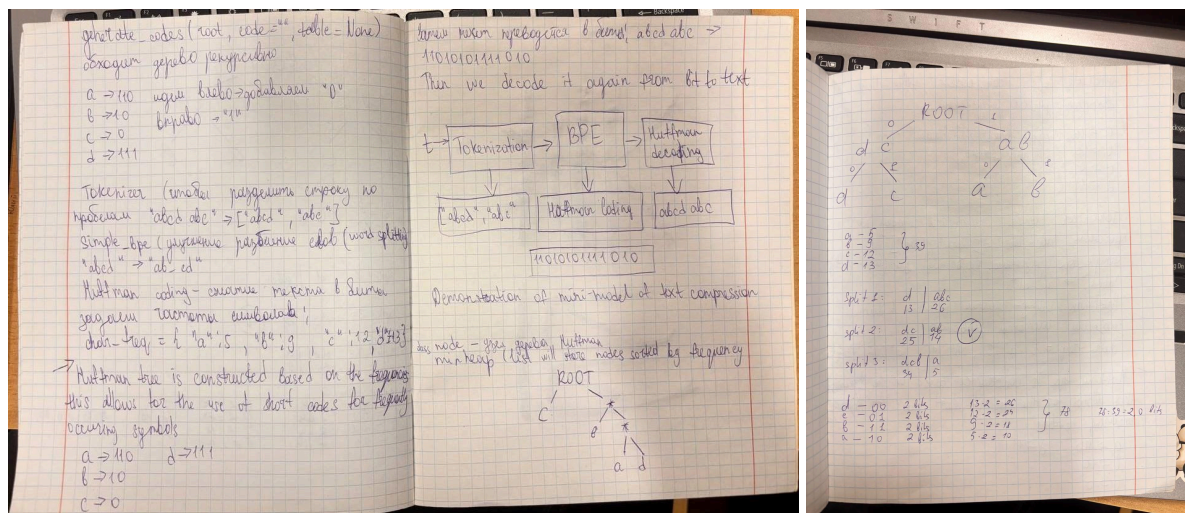 generate_codes (root, code="", table=None)
обходит дерево рекурсивно
a → 110 идём влево → добавляем "0"
b → 10 вправо → "1"
c → 0
d → 111
Tokenizer (чтобы разделить строку по
пробелам "abcd abc" → ["abcd", "abc"]
Simple_bpe (улучшение разбиение слов (word splitting)
"abcd" → "ab_cd"
Huffman coding - сжатие текста в биты
задаём частоты символов;
char_freq = { "a": 5, "b": 9, "c": 12, "d": 13}
→ Huffman tree is constructed based on the frequencies
this allows for the use of short codes for frequently
occuring symbols
a → 110 d → 111
b → 10
c → 0
Затем текст переводится в биты, abcd abc →
11010101111010
Then we decode it again from bit to text
t → Tokenization → BPE → Huffman decoding
["abcd", "abc"] Huffman coding abcd abc
11010101111010
Demonstration of mini-model of text compression
class node - узел дерева Huffman
minheap (list will store nodes sorted by frequency
ROOT
C *
b *
a d
SWIFT
Backspace
ROOT
0 1
dc ab
0 1 0 1
d c a b
a - 5
b - 9
c - 12
d - 13
} 39
split 1: d | abc
13 | 26
split 2: dc | ab
25 | 14 V
split 3: dcb | a
34 | 5
d - 00 2 bits 13·2=26
c - 01 2 bits 12·2=24
b - 11 2 bits 9·2=18
a - 10 2 bits 5·2=10
} 78 78:39=2,0 bits